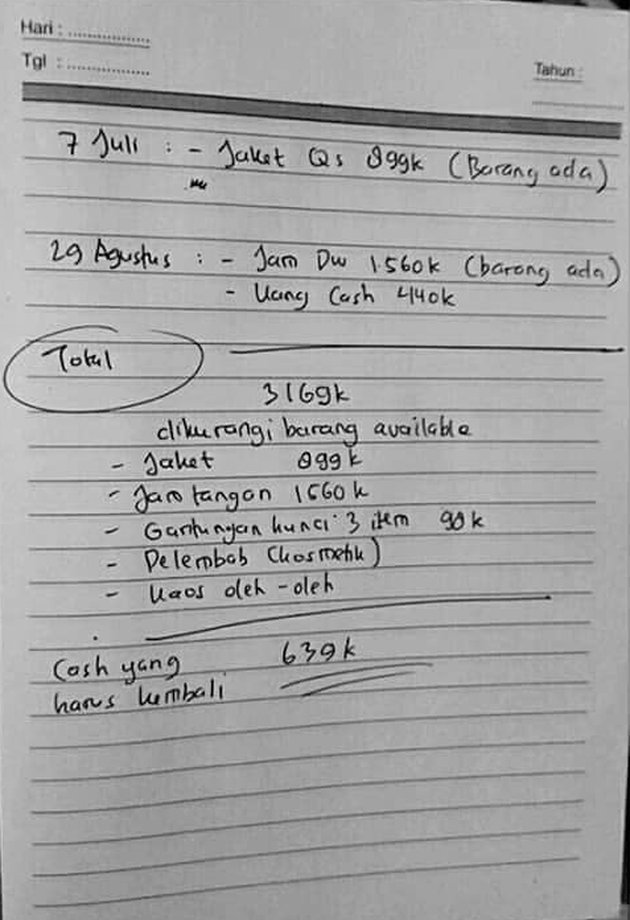 Hari : ....................
Tgl : ....................
Tahun :
7 Juli : - Jaket Qs 899k (Barang ada)
29 Agustus : - Jam Dw 1.560k (barang ada)
- Uang Cash 440k
Total
3169k
dikurangi barang available
- Jaket 899k
- Jam tangan 1560k
- Gantungan kunci 3 item 90k
- Pelembab (kosmetik)
- Kaos oleh-oleh
Cash yang 639k
harus kembali